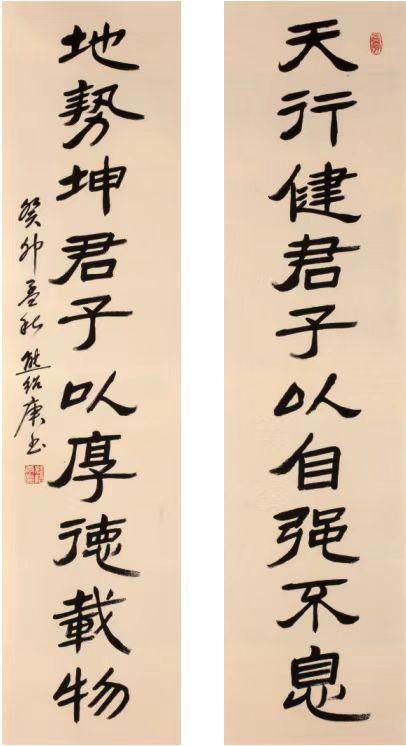 天行健君子以自强不息
地勢坤君子以厚德載物
癸卯孟秋熊紹庚书